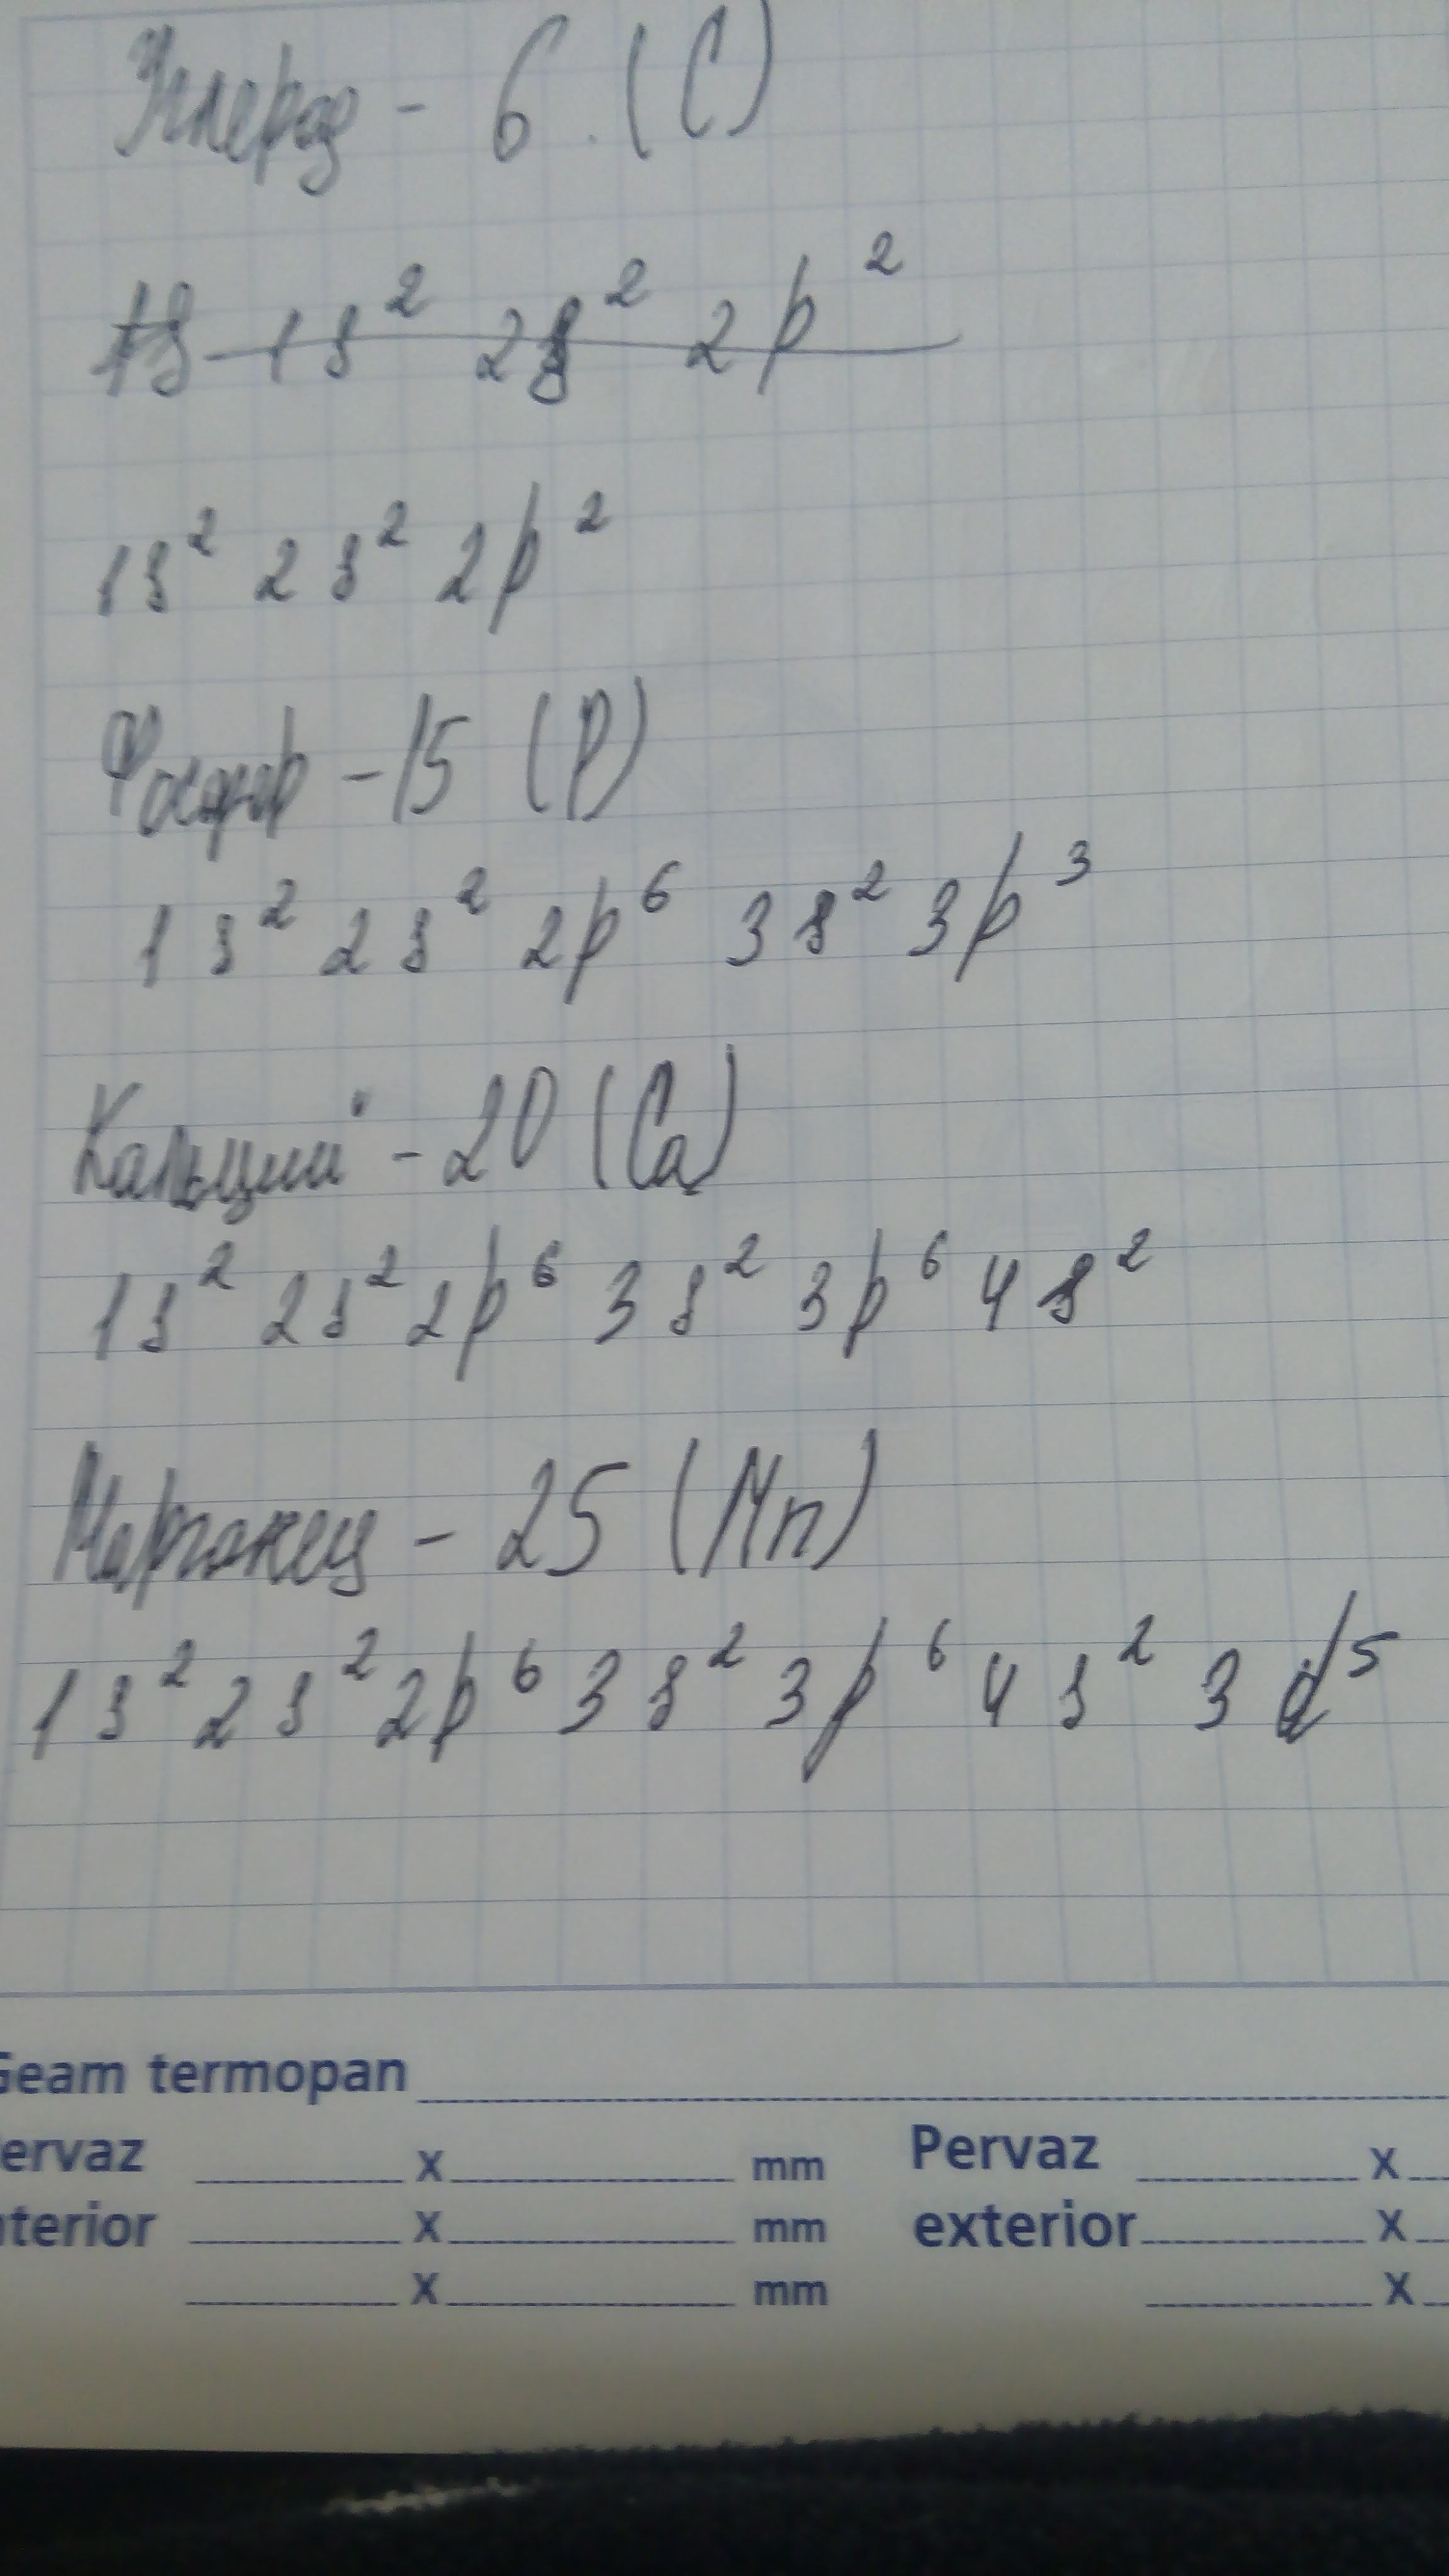 Углерод - 6. (C)
1s 1s² 2s² 2p²
1s² 2s² 2p²
Фосфор - 15 (P)
1s² 2s² 2p⁶ 3s² 3p³
Кальций - 20 (Ca)
1s² 2s² 2p⁶ 3s² 3p⁶ 4s²
Марганец - 25 (Mn)
1s² 2s² 2p⁶ 3s² 3p⁶ 4s² 3d⁵
Geam termopan
ervaz x mm Pervaz x
terior x mm exterior x
x mm x